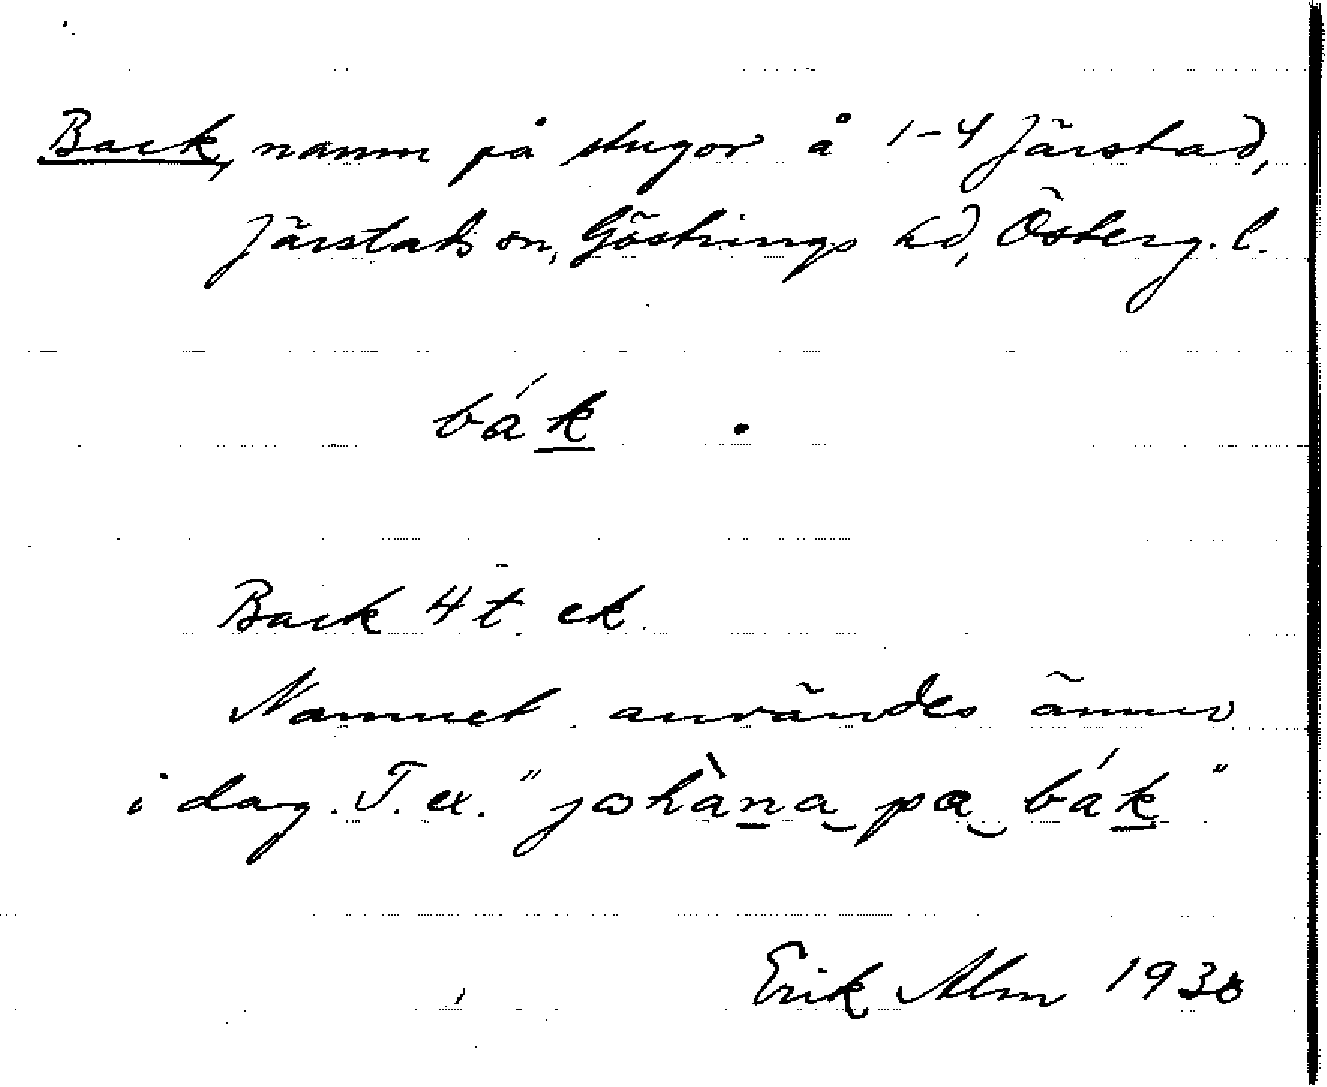 Back, namn på stugor å 1-4 Järstad,
Järstads sn, Göstrings hd, Österg. l.
bák.
Back 4 t. ek.
Namnet användes ännu
i dag. T. ex. "johàna pa bák"
Erik Alm 1930